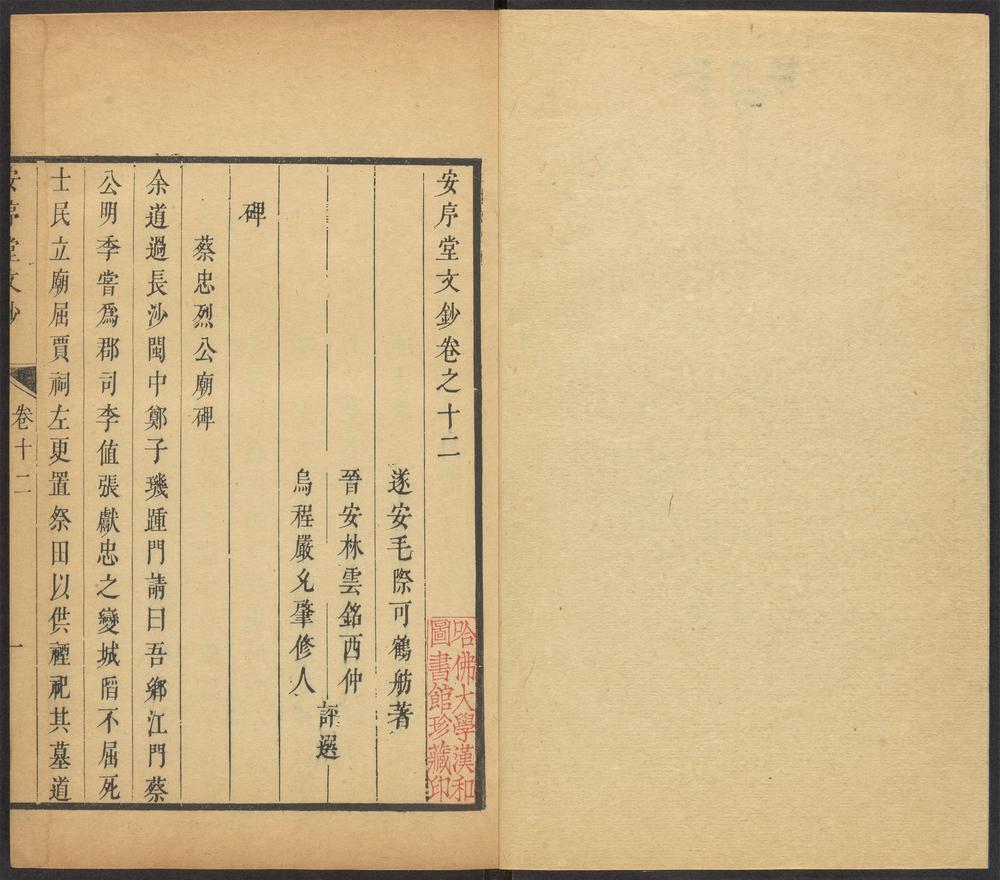 安序堂文鈔卷之十二
遂安毛際可鶴舫著
晉安林雲銘西仲
烏程嚴允肇修人
評選
碑
蔡忠烈公廟碑
余道過長沙閩中鄭子璣踵門請曰吾鄉江門蔡
公明季嘗爲郡司李值張獻忠之變城陷不屈死
士民立廟屈賈祠左更置祭田以供禋祀其墓道
安序堂文鈔
卷十二
一
哈佛大學漢和
圖書館珍藏印